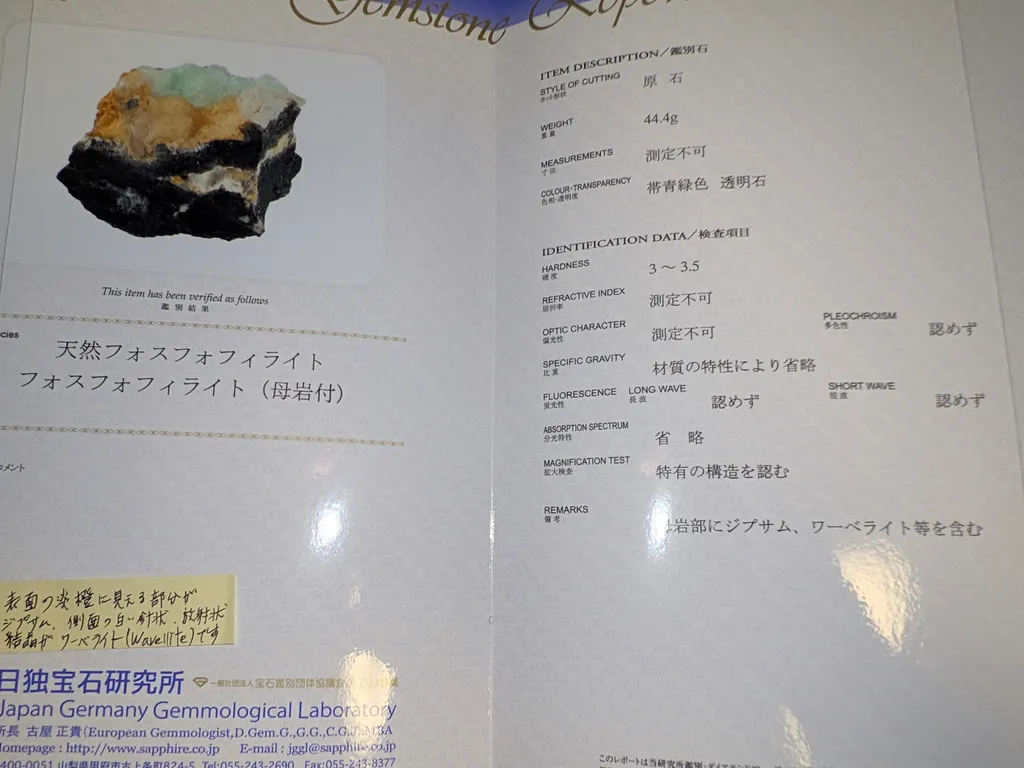 Gemstone Repor
This item has been verified as follows
鑑別結果
ecies
天然フォスフォフィライト
フォスフォフィライト（母岩付）
コメント
表面の淡橙に見える部分が
ジプサム、側面の白い針状、放射状
結晶がワーベライト(Wavellite)です
日独宝石研究所
一般社団法人 宝石鑑別団体協議会
Japan Germany Gemmological Laboratory
所長 古屋 正貴(European Gemmologist,D.Gem.G.,G.G.,C.G.J.,MBA
Homepage : http://www.sapphire.co.jp E-mail : jggl@sapphire.co.jp
400-0051 山梨県甲府市古上条町824-5 Tel:055-243-2690 Fax:055-243-8377
ITEM DESCRIPTION/鑑別石
STYLE OF CUTTING 原 石
カット形状
WEIGHT 44.4g
重量
MEASUREMENTS 測定不可
寸法
COLOUR・TRANSPARENCY 帯青緑色 透明石
色相・透明度
IDENTIFICATION DATA/検査項目
HARDNESS 3 ～ 3.5
硬度
REFRACTIVE INDEX 測定不可
屈折率
OPTIC CHARACTER 測定不可 PLEOCHROISM 認めず
偏光性 多色性
SPECIFIC GRAVITY 材質の特性により省略
比重
FLUORESCENCE LONG WAVE 認めず SHORT WAVE 認めず
蛍光性 長波 短波
ABSORPTION SPECTRUM 省 略
分光特性
MAGNIFICATION TEST 特有の構造を認む
拡大検査
REMARKS 母岩部にジプサム、ワーベライト等を含む
備考
このレポートは当研究所鑑別・ダイアモンド